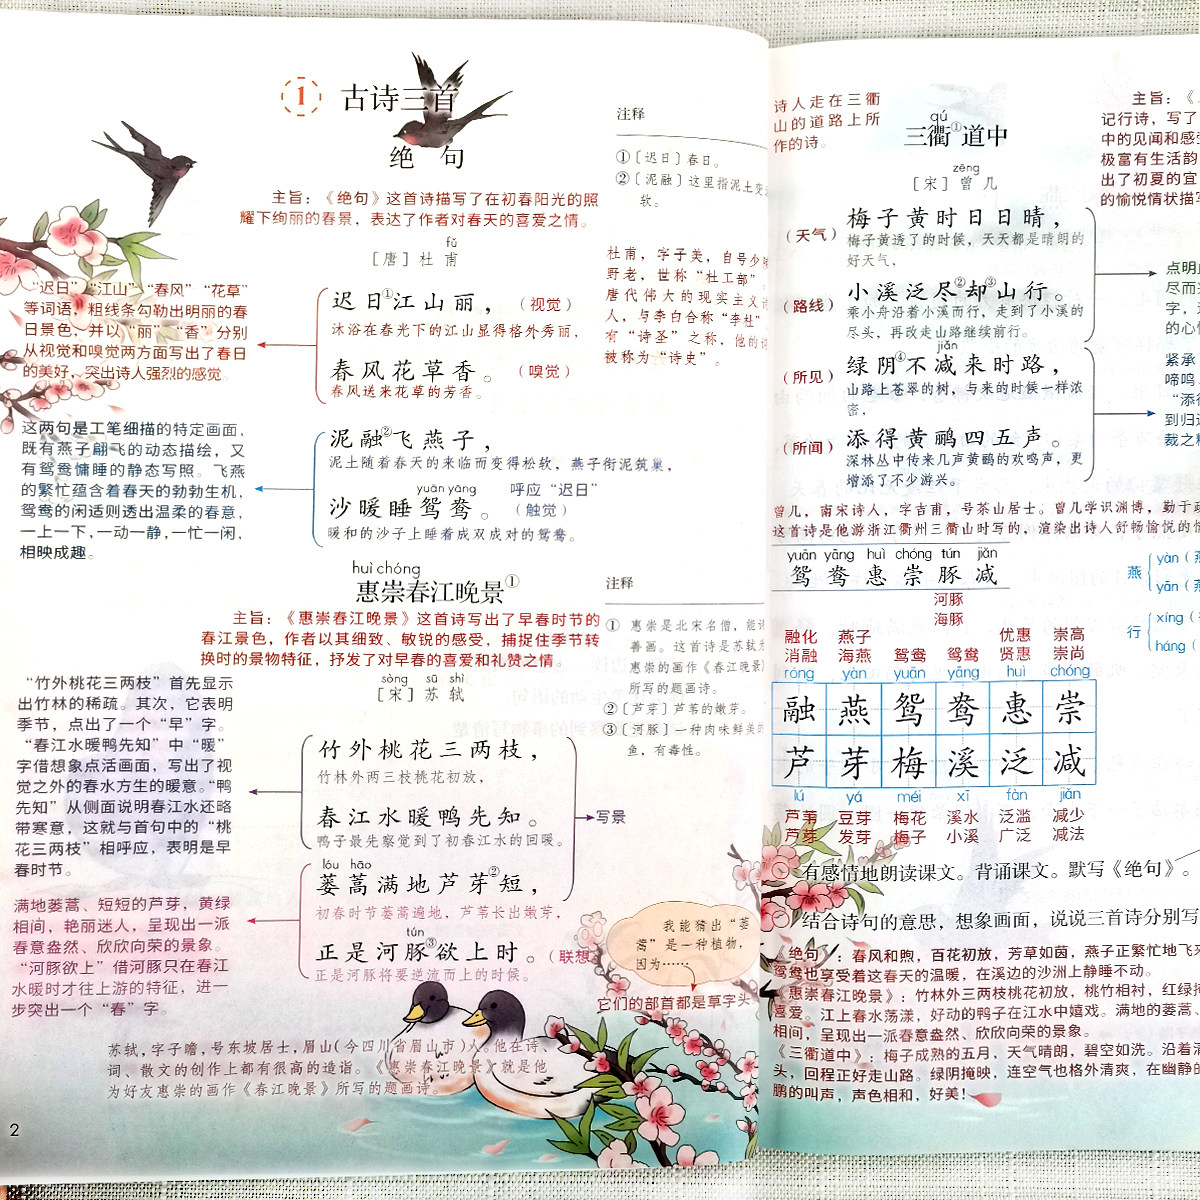 1 古诗三首
绝句
主旨：《绝句》这首诗描写了在初春阳光的照
耀下绚丽的春景，表达了作者对春天的喜爱之情。
fǔ
［唐］杜甫
“迟日”“江山”“春风”“花草”
等词语，粗线条勾勒出明丽的春
日景色，并以“丽”“香”分别
从视觉和嗅觉两方面写出了春日
的美好，突出诗人强烈的感觉。
迟日①江山丽，（视觉）
沐浴在春光下的江山显得格外秀丽，
春风花草香。（嗅觉）
春风送来花草的芳香。
这两句是工笔细描的特定画面，
既有燕子翩飞的动态描绘，又
有鸳鸯慵睡的静态写照。飞燕
的繁忙蕴含着春天的勃勃生机，
鸳鸯的闲适则透出温柔的春意，
一上一下，一动一静，一忙一闲，
相映成趣。
泥融②飞燕子，
泥土随着春天的来临而变得松软，燕子衔泥筑巢，
yuān yāng 呼应“迟日”
沙暖睡鸳鸯。（触觉）
暖和的沙子上睡着成双成对的鸳鸯。
注释
①〔迟日〕春日。
②〔泥融〕这里指泥土变
软。
杜甫，字子美，自号少
野老，世称“杜工部”。
唐代伟大的现实主义
人，与李白合称“李杜”
有“诗圣”之称，他的
被称为“诗史”。
huì chóng
惠崇春江晚景①
主旨：《惠崇春江晚景》这首诗写出了早春时节的
春江景色，作者以其细致、敏锐的感受，捕捉住季节转
换时的景物特征，抒发了对早春的喜爱和礼赞之情。
sòng sū shì
［宋］苏轼
“竹外桃花三两枝”首先显示
出竹林的稀疏。其次，它表明
季节，点出了一个“早”字。
“春江水暖鸭先知”中“暖”
字借想象点活画面，写出了视
觉之外的春水方生的暖意。“鸭
先知”从侧面说明春江水还略
带寒意，这就与首句中的“桃
花三两枝”相呼应，表明是早
春时节。
竹外桃花三两枝，
竹林外两三枝桃花初放，
春江水暖鸭先知。
鸭子最先察觉到了初春江水的回暖。
写景
满地蒌蒿、短短的芦芽，黄绿
相间，艳丽迷人，呈现出一派
春意盎然、欣欣向荣的景象。
“河豚欲上”借河豚只在春江
水暖时才往上游的特征，进一
步突出一个“春”字。
lóu hāo
蒌蒿满地芦芽②短，
初春时节蒌蒿遍地，芦苇长出嫩芽，
tún
正是河豚③欲上时。（联想
正是河豚将要逆流而上的时候。
注释
① 惠崇是北宋名僧，能
善画。这首诗是苏轼为
惠崇的画作《春江晚景》
所写的题画诗。
②〔芦芽〕芦苇的嫩芽。
③〔河豚〕一种肉味鲜美的
鱼，有毒性。
我能猜出“蒌
蒿”是一种植物，
因为……
它们的部首都是草字头
苏轼，字子瞻，号东坡居士，眉山（今四川省眉山市）人。他在诗、
词、散文的创作上都有很高的造诣。《惠崇春江晚景》就是他
为好友惠崇的画作《春江晚景》所写的题画诗。
2
诗人走在三衢
山的道路上所
作的诗。
qú
三衢①道中
zēng
［宋］曾几
主旨：《
记行诗，写了
中的见闻和感
极富有生活韵
出了初夏的宜
的愉悦情状描写
（天气）梅子黄时日日晴，
梅子黄透了的时候，天天都是晴朗的
好天气，
（路线）小溪泛尽②却③山行。
乘小舟沿着小溪而行，走到了小溪的
尽头，再改走山路继续前行。
点明
尽而
字，
的心
jiǎn
（所见）绿阴④不减来时路，
山路上苍翠的树，与来的时候一样浓
密，
（所闻）添得黄鹂四五声。
深林丛中传来几声黄鹂的欢鸣声，更
增添了不少游兴。
紧承
啼鸣
“添得
到归
裁之
曾几，南宋诗人，字吉甫，号茶山居士。曾几学识渊博，勤于
这首诗是他游浙江衢州三衢山时写的，渲染出诗人舒畅愉悦的情
yuān yāng huì chóng tún jiǎn
鸳鸯惠崇豚减
河豚
海豚
燕 yàn（
yān（
行 xíng（
háng（
融化 燕子 优惠 崇高
消融 海燕 鸳鸯 鸳鸯 贤惠 崇尚
róng yàn yuān yāng huì chóng
融燕鸳鸯惠崇
芦芽梅溪泛减
lú yá méi xī fàn jiǎn
芦苇 豆芽 梅花 溪水 泛滥 减少
芦芽 发芽 梅子 小溪 广泛 减法
有感情地朗读课文。背诵课文。默写《绝句》。
结合诗句的意思，想象画面，说说三首诗分别写
《绝句》：春风和煦，百花初放，芳草如茵，燕子正繁忙地飞
鸳鸯也享受着这春天的温暖，在溪边的沙洲上静睡不动。
《惠崇春江晚景》：竹林外三两枝桃花初放，桃竹相衬，红绿
喜爱。江上春水荡漾，好动的鸭子在江水中嬉戏。满地的蒌蒿、
相间，呈现出一派春意盎然、欣欣向荣的景象。
《三衢道中》：梅子成熟的五月，天气晴朗，碧空如洗。沿着
头，回程正好走山路。绿阴掩映，连空气也格外清爽，在幽静的
鹂的叫声，声色相和，好美！